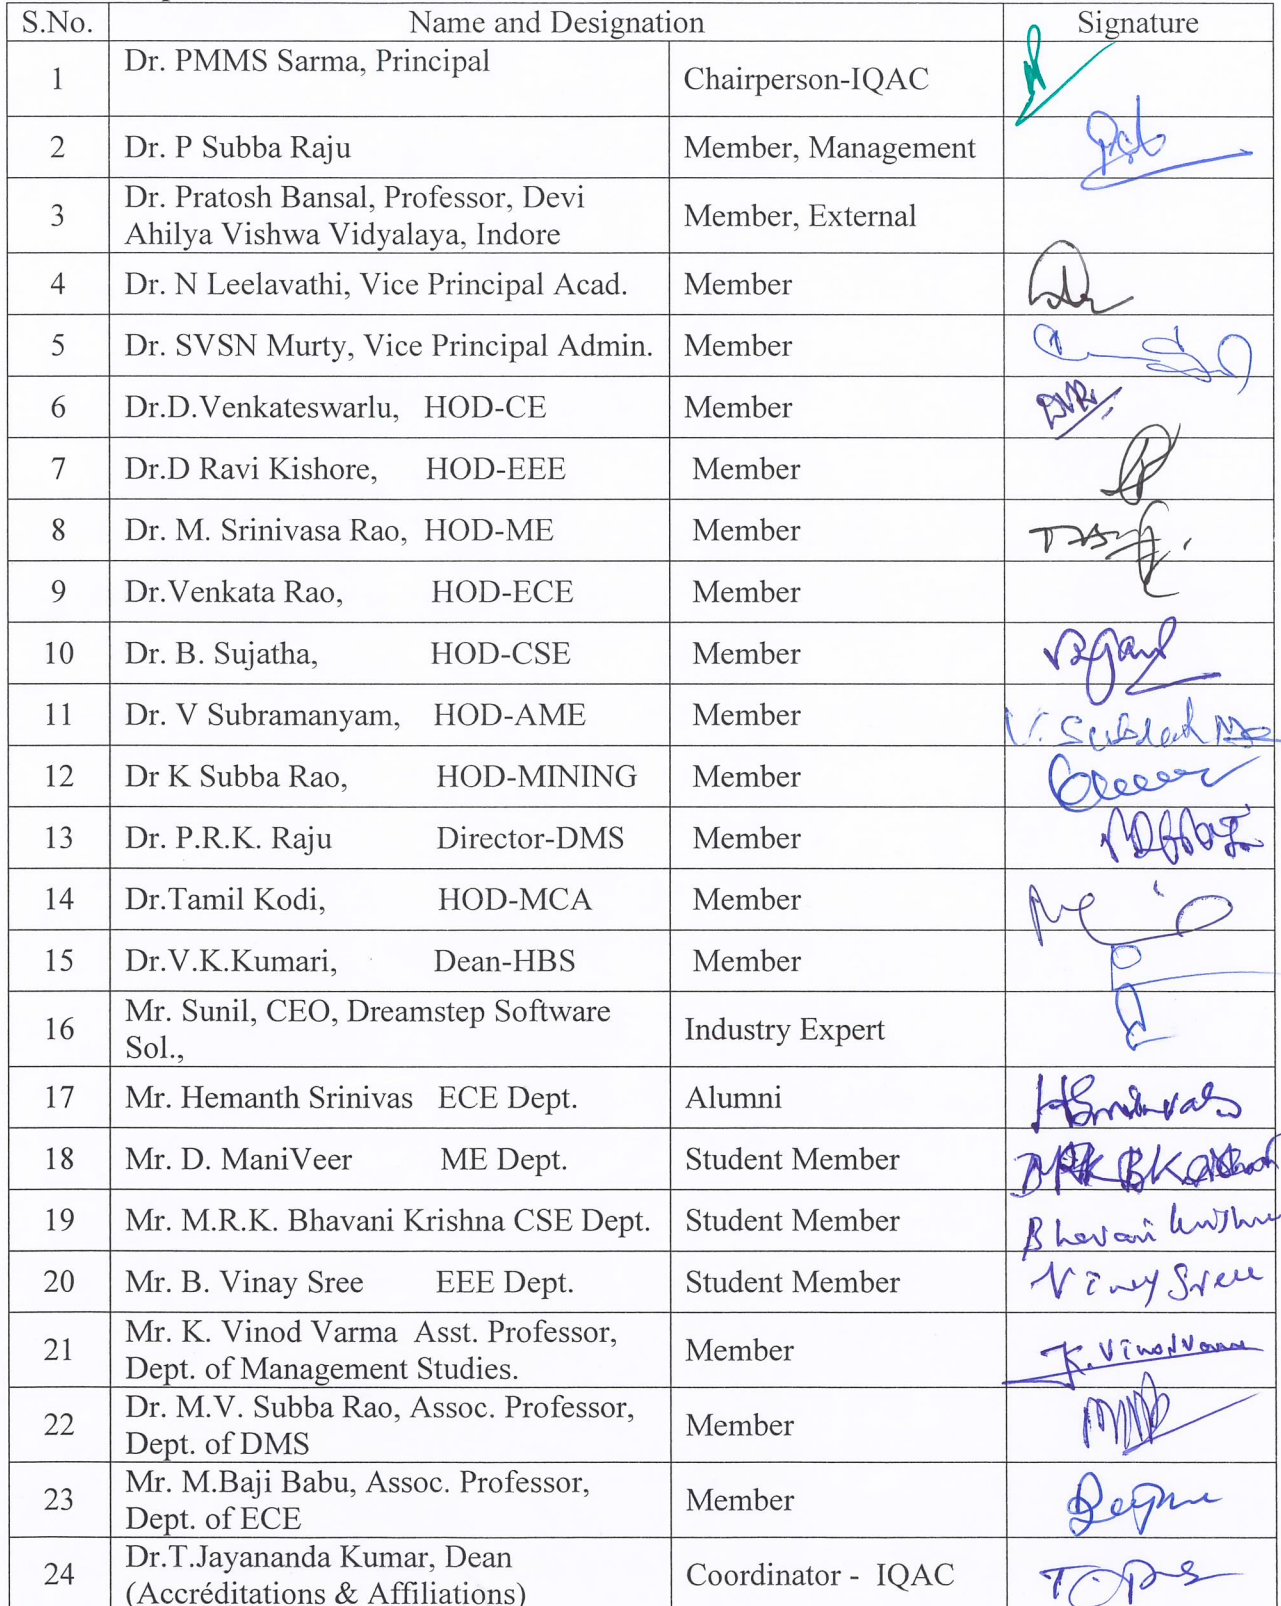 S.No. Name and Designation Signature
1 Dr. PMMS Sarma, Principal Chairperson-IQAC
2 Dr. P Subba Raju Member, Management
3 Dr. Pratosh Bansal, Professor, Devi Member, External
Ahilya Vishwa Vidyalaya, Indore
4 Dr. N Leelavathi, Vice Principal Acad. Member
5 Dr. SVSN Murty, Vice Principal Admin. Member
6 Dr.D.Venkateswarlu, HOD-CE Member
7 Dr.D Ravi Kishore, HOD-EEE Member
8 Dr. M. Srinivasa Rao, HOD-ME Member
9 Dr.Venkata Rao, HOD-ECE Member
10 Dr. B. Sujatha, HOD-CSE Member
11 Dr. V Subramanyam, HOD-AME Member
12 Dr K Subba Rao, HOD-MINING Member
13 Dr. P.R.K. Raju Director-DMS Member
14 Dr.Tamil Kodi, HOD-MCA Member
15 Dr.V.K.Kumari, Dean-HBS Member
16 Mr. Sunil, CEO, Dreamstep Software Industry Expert
Sol.,
17 Mr. Hemanth Srinivas ECE Dept. Alumni
18 Mr. D. ManiVeer ME Dept. Student Member
19 Mr. M.R.K. Bhavani Krishna CSE Dept. Student Member Bhavani Krishna
20 Mr. B. Vinay Sree EEE Dept. Student Member Vinay Sree
21 Mr. K. Vinod Varma Asst. Professor, Member K. Vinod Varma
Dept. of Management Studies.
22 Dr. M.V. Subba Rao, Assoc. Professor, Member
Dept. of DMS
23 Mr. M.Baji Babu, Assoc. Professor, Member
Dept. of ECE
24 Dr.T.Jayananda Kumar, Dean Coordinator - IQAC
(Accréditations & Affiliations)